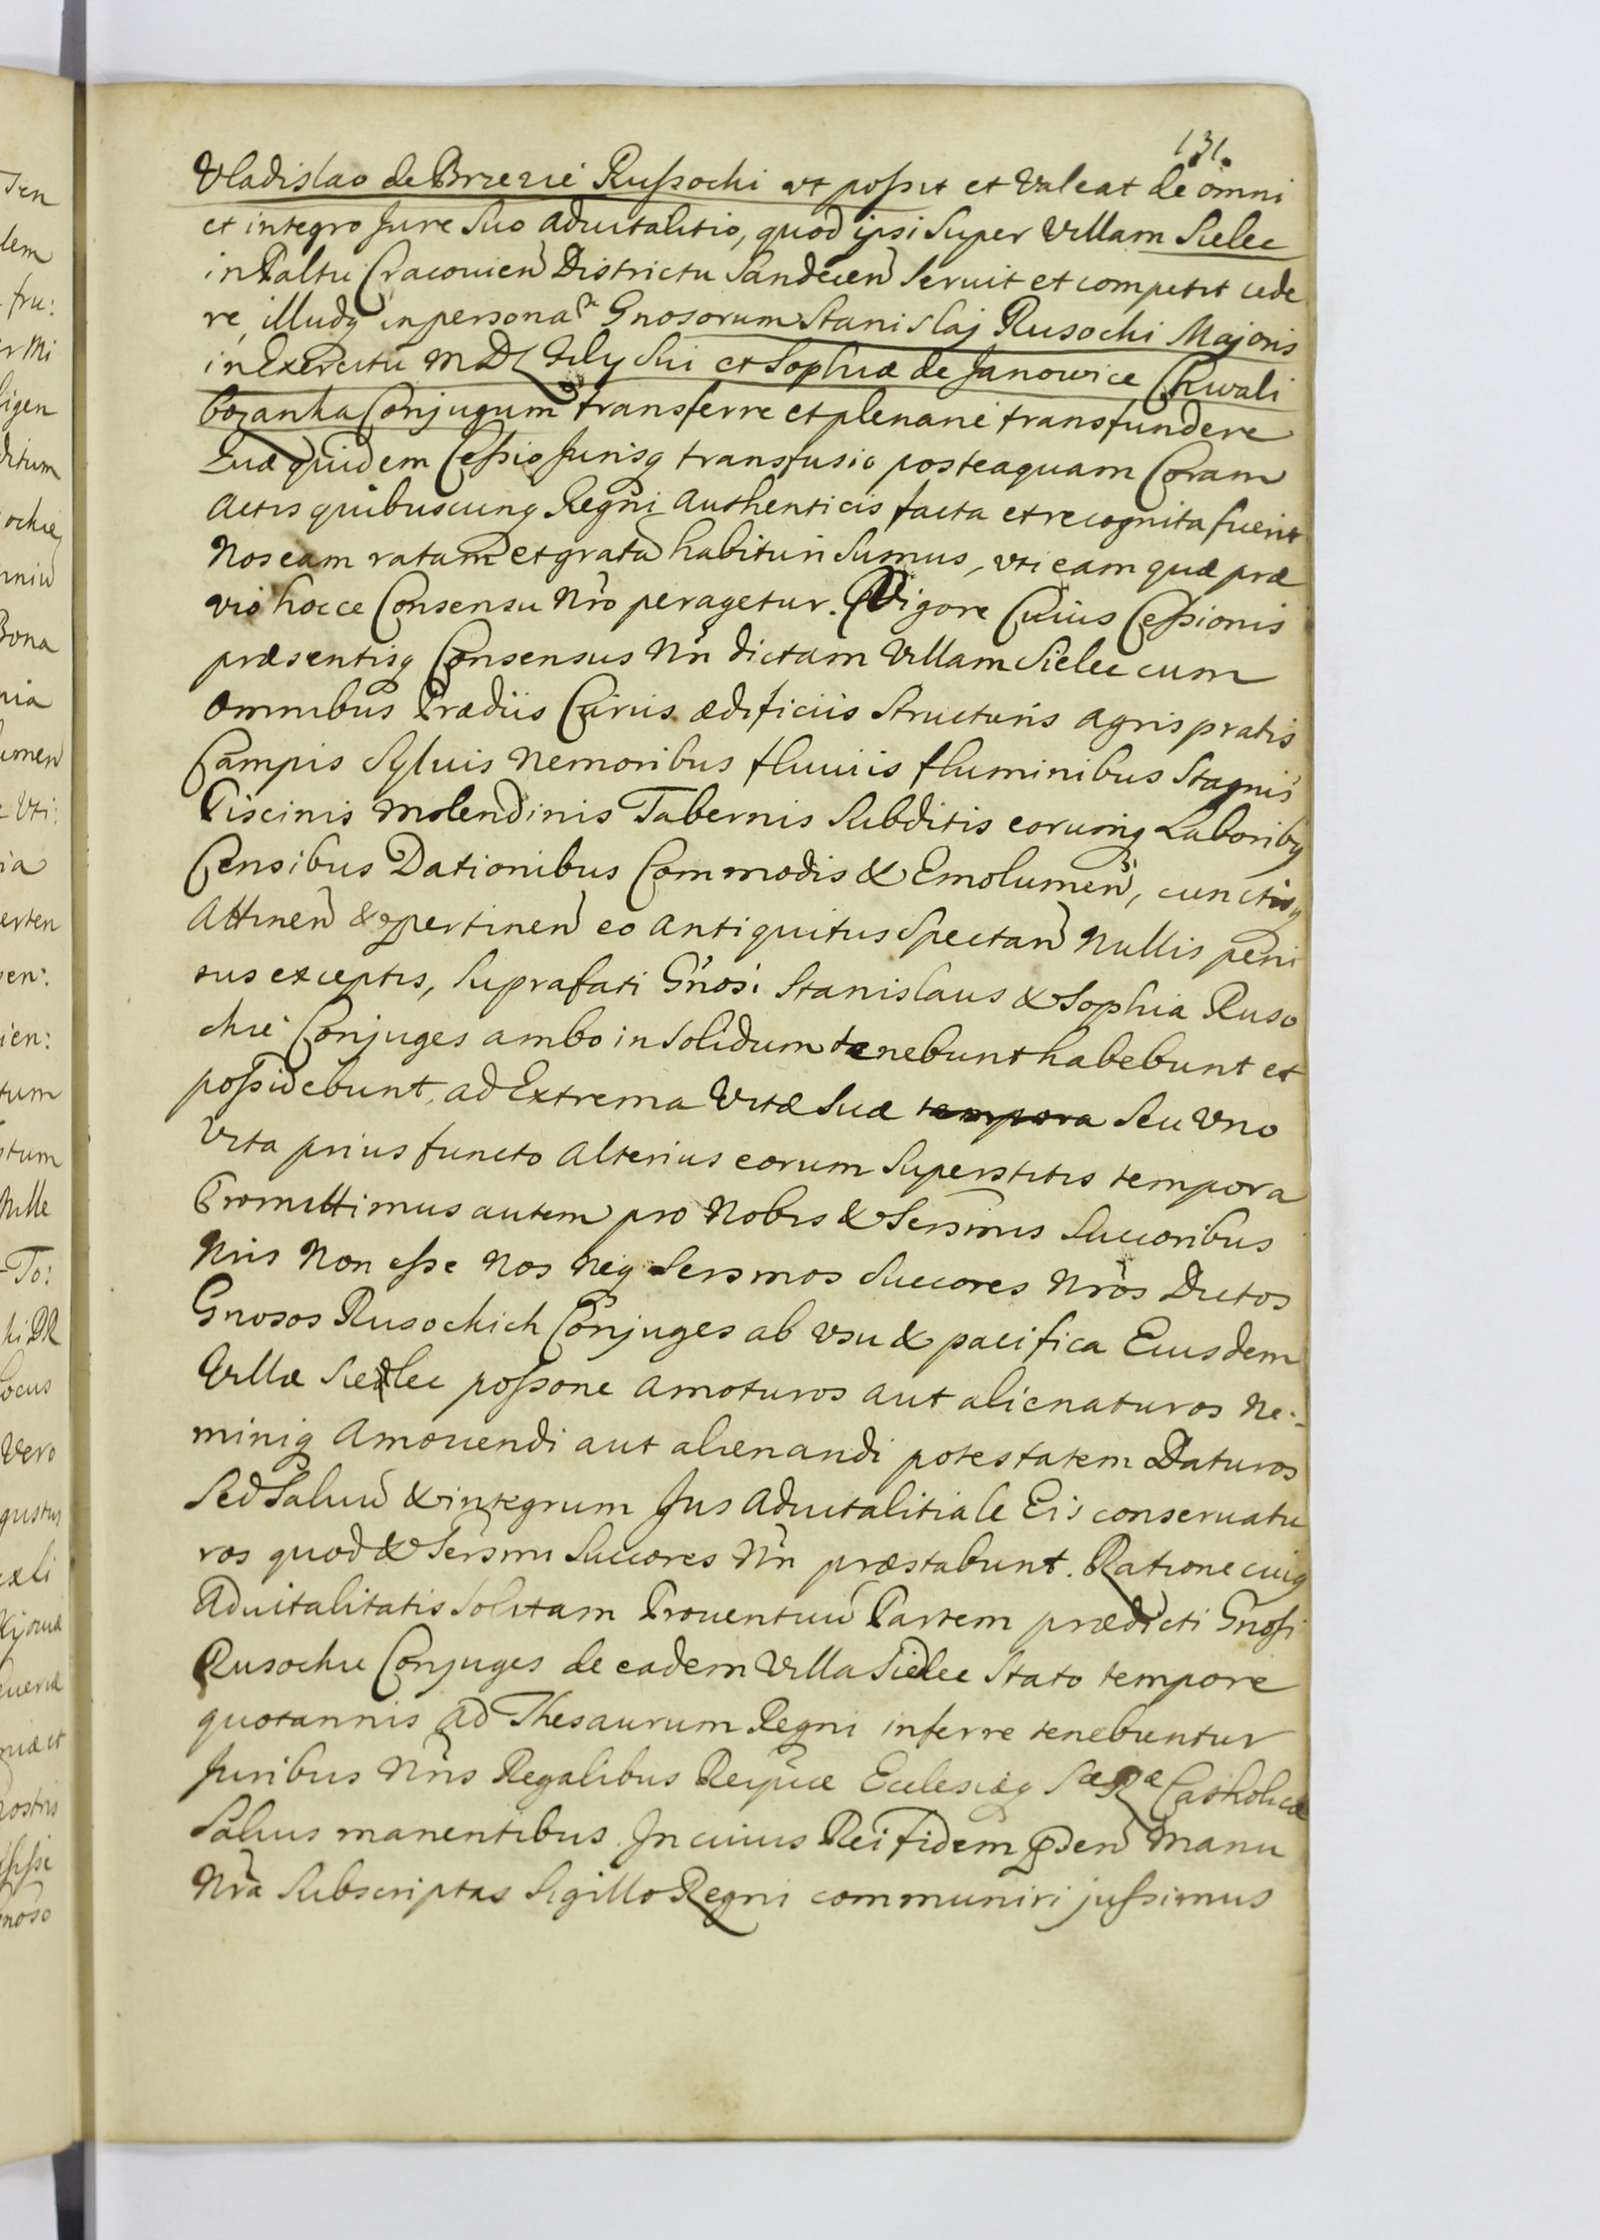 131.
Vladislao de Brzezie Russochi ut possit et Valeat de omni
et integro Jure Suo advitalitio, quod ipsi Super Villam Sielec
in Paltu Cracouien Districtu Sandecen Seruit et competit cede
re, illudq in personas Gnosorum Stanislaj Rusochi Majoris
in Exercitu M D L Filij Sui et Sophiæ de Janowice Chwali
bozanka Conjugum transferre et plenarie transfundere
Quæ quidem Cessio Jurisq transfusio posteaquam Coram
Actis quibuscunq Regni Authenticis facta et recognita fuerit
Nos eam ratam et grata habituri Sumus, uti eam quæ præ
vio hocce Consensu Nro peragetur. Vigore Cuius Cessionis
præsentisq Consensus Nri dictam Villam Sielec cum
omnibus Prædiis Curiis ædificiis Structuris agris pratis
Campis Syluis Nemoribus fluuiis fluminibus Stagnis
Piscinis Molendinis Tabernis Subditis eorumq Laboribq
Censibus Dationibus Commodis & Emolumen, cunctisq
Attinen & pertinen eo antiquitus Spectan Nullis peni
tus exceptis, Suprafati Gnosi Stanislaus & Sophia Ruso
chie Conjuges ambo in Solidum tenebunt habebunt et
possidebunt, ad Extrema Vitæ Suæ tempora Seu Vno
Vita prius functo Alterius eorum Superstitis tempora
Promittimus autem pro Nobis & Sersmis Succoribus
Nris Non esse Nos Neq Sersmos Succores Nros Dictos
Gnosos Rusochich Conjuges ab Vsu & pacifica Eiusdem
Villæ Sielec possone amoturos aut alienaturos Ne:
miniq Amouendi aut alienandi potestatem Daturos
Sed Saluu & integrum Jus advitalitiale Eis conseruatu
ros quod & Sersmi Succores Nri præstabunt. Ratione cuiq
Advitalitatis Solitam Prouentuu Partem prædicti Gnosi
Rusochie Conjuges de eadem Villa Sielec Stato tempore
quotannis ad Thesaurum Regni inferre tenebuntur
Juribus Nris Regalibus Reipcæ Ecclesiæq Catholicæ
Saluis manentibus. In cuius Rei fidem psen Manu
Nra Subscriptas Sigillo Regni communiri jussimus